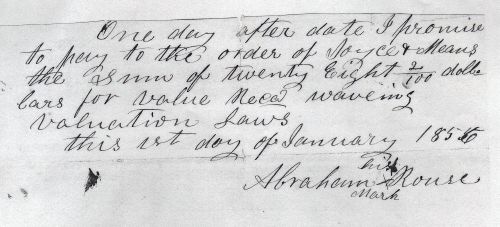 One day after date I promise
to pay to the order of Joyce & Means
the Sum of twenty Eight 2/100 doll
lars for value Recd waveing
valuation Laws
this 1st day of January 1856
his
Abraham X Rouse
Mark